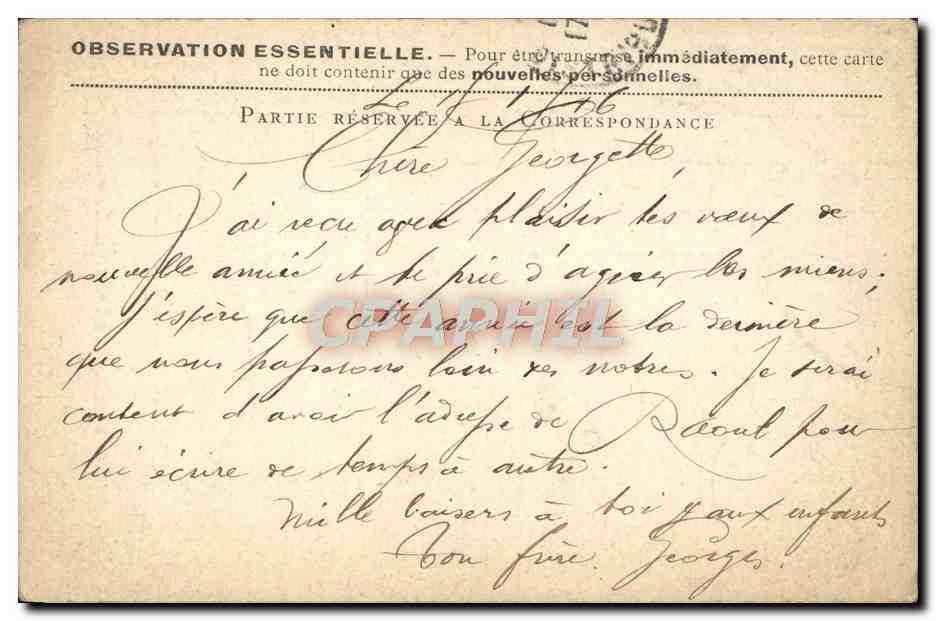 OBSERVATION ESSENTIELLE. — Pour être transmise immédiatement, cette carte
ne doit contenir que des nouvelles personnelles.
PARTIE RÉSERVÉE A LA CORRESPONDANCE
Chère Georgette,
J'ai reçu avec plaisir tes vœux de
nouvelle année et te prie d'agréer les miens;
J'espère que cette année est la dernière
que nous passerons loin des notres. Je serai
content d'avoir l'adresse de Raoul pour
lui écrire de temps à autre.
Mille baisers à toi & aux enfants
Ton frère Georges.
CPAPHIL